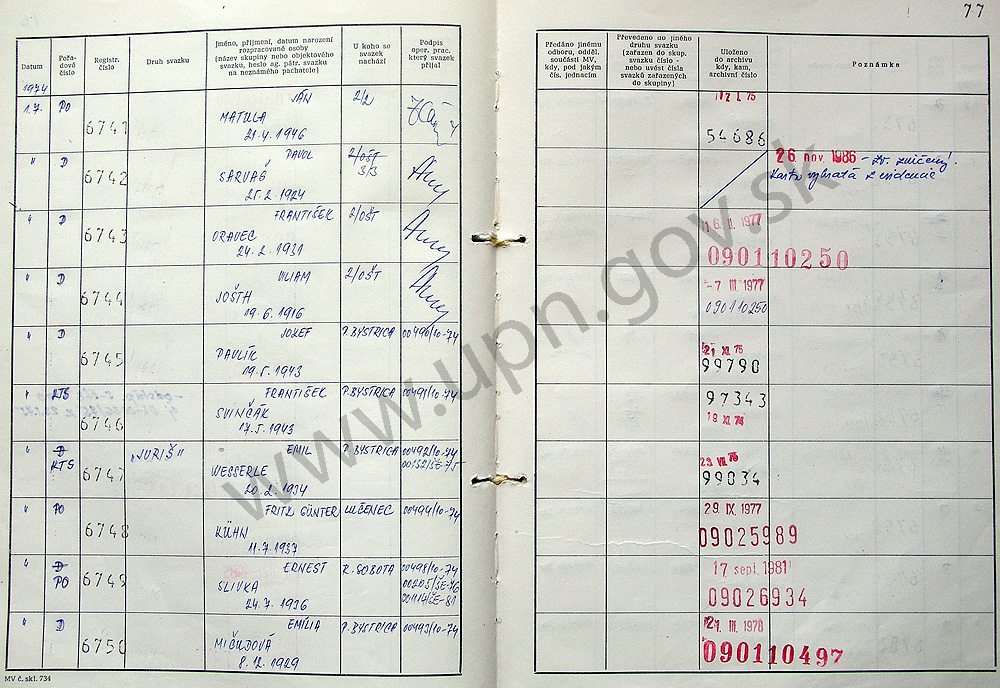 77
Datum
Pořa-
dové
číslo
Registr.
číslo
Druh svazku
Jméno, příjmení, datum narození
rozpracované osoby
(název skupiny nebo objektového
svazku, heslo ag. pátr. svazku
na neznámého pachatele)
U koho se
svazek
nachází
Podpis
oper. prac.
který svazek
přijal
Předáno jinému
odboru, odděl.
součásti MV,
kdy, pod jakým
čís. jednacím
Převedeno do jiného
druhu svazku
(zařazen do skup.
svazku číslo -
nebo uvést čísla
svazků zařazených
do skupiny)
Uloženo
do archivu
kdy, kam,
archivní číslo
Poznámka
1974
1.7. PO 6741 JÁN 2/2
MATULA
21.4.1946
54686
" D 6742 PAVOL 2/OŠT
3/3
SARVAŠ
25.2.1924
26 nov 1986 - zv. zničený!
Karta vybratá z evidencie
" D 6743 FRANTIŠEK 2/OŠT
ORAVEC
24.2.1931
1977
090110250
" D 6744 VILIAM 2/OŠT
JOŠTH
19.6.1916
-7 III. 1977
090110250
" D 6745 JOZEF P.BYSTRICA 00490/10-74
PAVLÍK
19.5.1943
21 XI. 75
99790
" KTS 6746 FRANTIŠEK P.BYSTRICA 00491/10-74
SVINČÁK
17.5.1943
97343
" D 6747 „JURIŠ" EMIL P.BYSTRICA 00492/10-74
KTS 00152/ŠE-75
WESSERLE
20.2.1934
99034
" PO 6748 FRITZ GÜNTER LUČENEC 00494/10-74
KÜHN
11.7.1937
29. IX. 1977
09025989
" D 6749 ERNEST R.SOBOTA 00498/10-74
PO 00205/ŠE-76
SLIVKA
24.7.1936
17 sept. 1981
09026934
" D 6750 EMÍLIA P.BYSTRICA 00493/10-74
MIČUDOVÁ
8.12.1929
21. III. 1978
090110497
MV č. skl. 734
www.upn.gov.sk